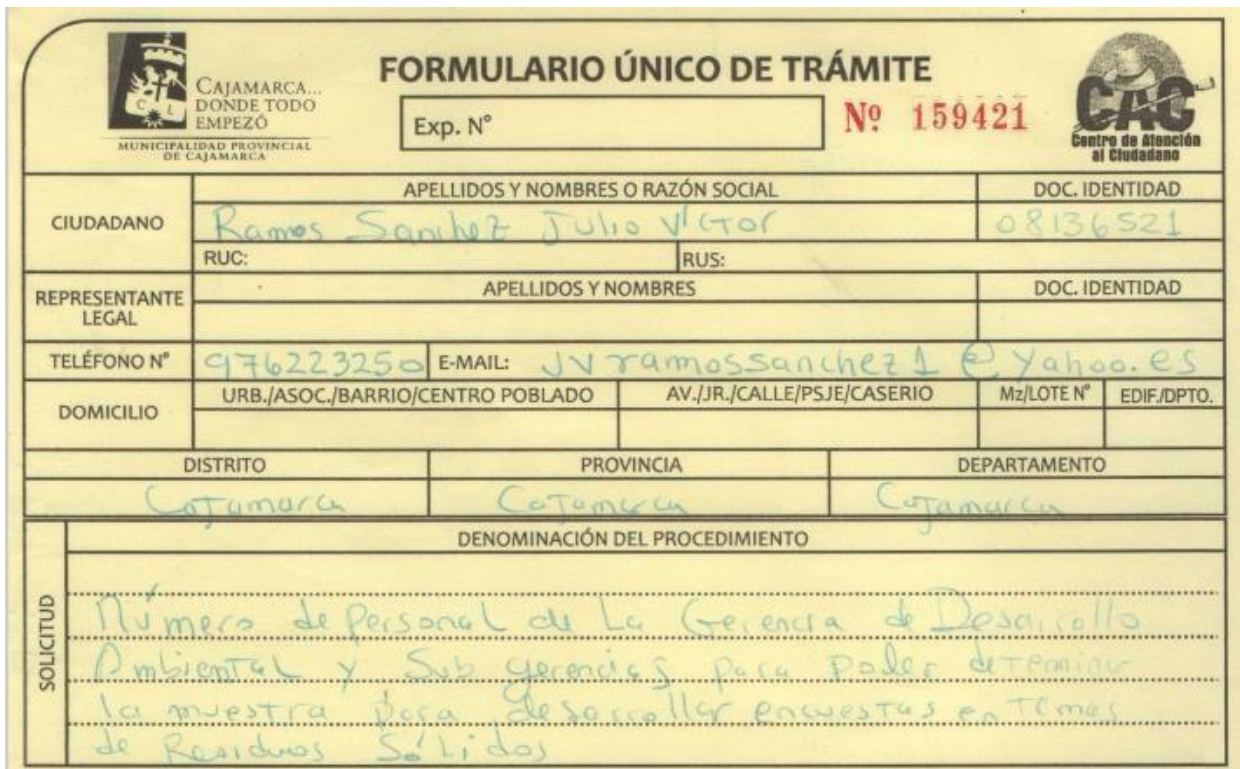 CAJAMARCA...
DONDE TODO
EMPEZÓ
MUNICIPALIDAD PROVINCIAL
DE CAJAMARCA
FORMULARIO ÚNICO DE TRÁMITE
Exp. N°
Nº 159421
CAC
Centro de Atención
al Ciudadano
CIUDADANO
APELLIDOS Y NOMBRES O RAZÓN SOCIAL
DOC. IDENTIDAD
Ramos Sanchez Julio Víctor
08136521
RUC:
RUS:
REPRESENTANTE
LEGAL
APELLIDOS Y NOMBRES
DOC. IDENTIDAD
TELÉFONO N° 976223250 E-MAIL: JVramossanchez1@Yahoo.es
DOMICILIO
URB./ASOC./BARRIO/CENTRO POBLADO
AV./JR./CALLE/PSJE/CASERIO
Mz/LOTE N°
EDIF./DPTO.
DISTRITO
PROVINCIA
DEPARTAMENTO
Cajamarca
Cajamarca
Cajamarca
SOLICITUD
DENOMINACIÓN DEL PROCEDIMIENTO
Número de Personal de La Gerencia de Desarrollo
Ambiental y Sub gerencias para Poder determinar
la muestra para desarrollar encuestas en Temas
de Residuos Sólidos